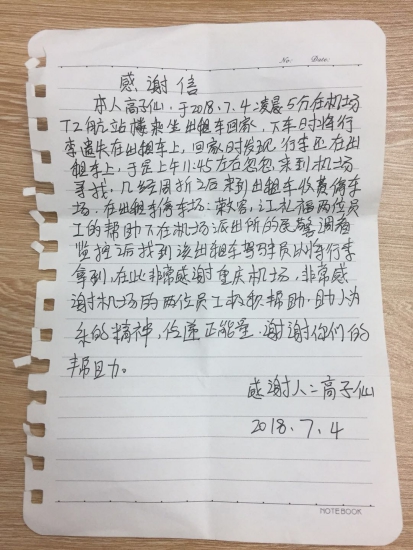 No:
Date:
感谢信
本人高子仙，于2018.7.4凌晨5分在机场
T2航站楼乘坐出租车回家，下车时将行
李遗失在出租车上，回家时发现，行李还在出
租车上，于是上午11:45左右匆忽，来到机场
寻找，几经周折之后来到出租车收费停车
场，在出租车停车场：荣容，江礼福两位员
工的帮助下在机场派出所的民警调看
监控后找到该出租车驾驶员以将行李
拿到，在此非常感谢重庆机场，非常感
谢机场的两位员工积积帮助，助人为
乐的精神，传递正能量，谢谢你们的
帮助。
感谢人：高子仙
2018.7.4
NOTEBOOK